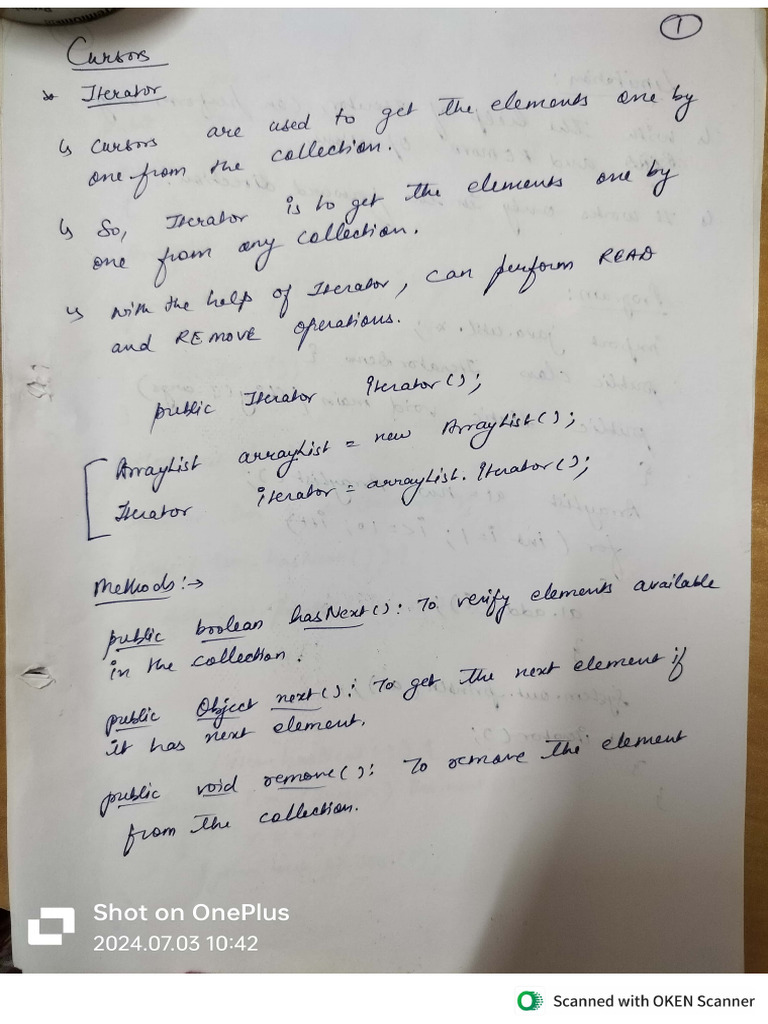 1
Cursors
* Iterator
↳ Cursors are used to get the elements one by
one from the collection.
↳ So, Iterator is to get the elements one by
one from any collection.
↳ With the help of Iterator, can perform READ
and REMOVE operations.
public Iterator iterator();
ArrayList arrayList = new ArrayList();
Iterator iterator = arrayList.iterator();
Methods:→
public boolean hasNext(): To verify elements available
in the collection.
public Object next(): To get the next element if
it has next element.
public void remove(): To remove the element
from the collection.
Shot on OnePlus
2024.07.03 10:42
Scanned with OKEN Scanner